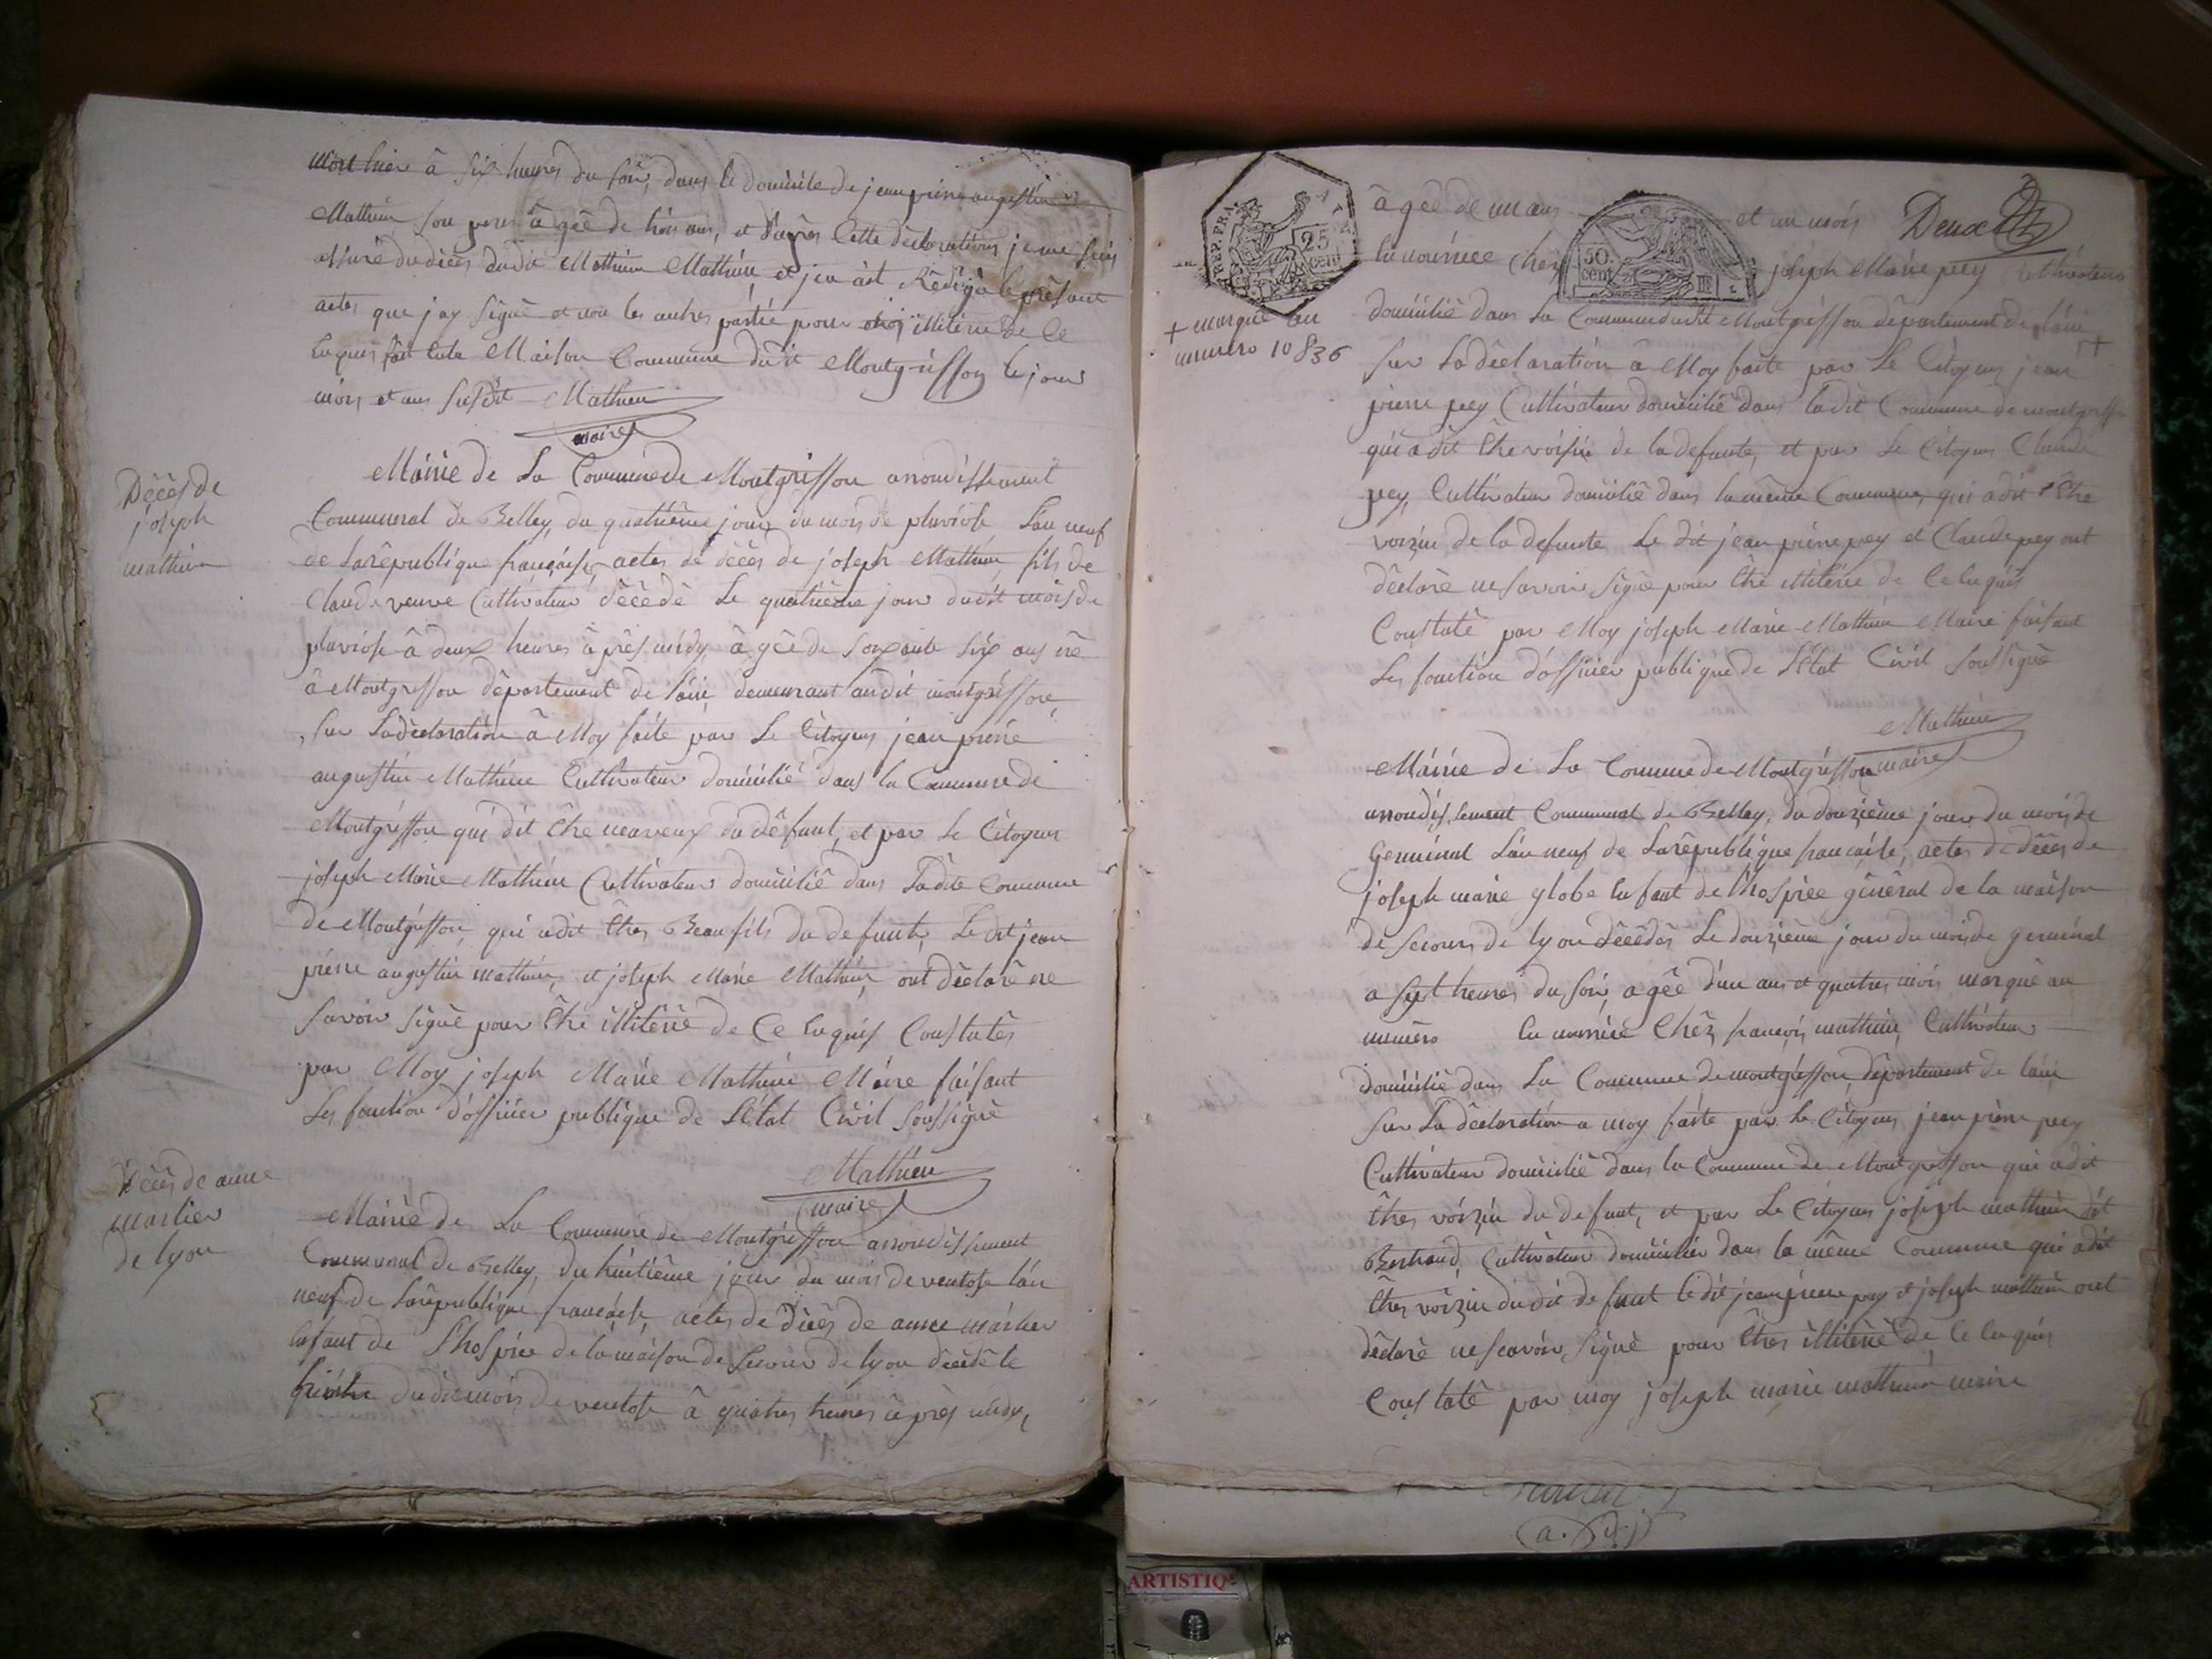 mort hier â six heures du soir, dans le domicile de jean pierre augustin
Mathieu son pere âgée de trois ans, et d'après cette déclarations je me suis
assuré du décès dudit Mathieu Mathieu, et jen ait Rédigé le présant
actes que jay signê et non les autres partie pour illitére de ce
enquis fait en la Maison Commune du dit Montgriffon le jour
mois et ans susdit Mathieu
maire
Décès de
joseph
mathieu
Mairie de La Commune de Montgriffon arrondissement
Communal de Belley, du quatriême jour du mois de pluviose L'an neuf
de Larêpublique françaises, actes de décès de joseph Mathieu fils de
Claude veuve Cultivateur dêcêdê Le quatrième jour dudit mois de
pluviose â deux heures âprês midy, âgêe de soixante six ans nê
â Montgriffon dêpartement de lain, demeurant audit montgriffon
sur La dêclaratión â Moy faite par Le Citoyen jean pierre
augustin Mathieu Cultivateur domicilié dans la Commune de
Montgriffon qui dit être neaveux du dêfunt, et par le Citoyen
joseph Marie Mathieu Cultivateur domicilié dans Ladite Commune
de Montgriffon, qui adit êtres Beaufils du defunt, Le dit jean
pierre augustin mathieu, et joseph Marie Mathieu, ont dêclarê ne
savoir signê pour être illitérê de ce enquis Constatês
par Moy joseph Marie Mathieu Maire faisant
Les fonction d'officier publique de Létat Civil soussignê
Mathieu
maire
Décês de anne
marlier
de lyon
Mairie de La Commune de Montgriffon arrondissement
Communal de Belley, du huitiême jour du mois de ventose lan
neuf de Larêpublique française, actes de dêcês de anne marlier
enfant de Lhospice de la maison de secours de lyon dêcêdê le
dudit mois de ventose â quatres heures âprês midy,
REP. FRA.
25
cent
50.
cent
âgêe de un ans et un mois Deux
en nourrice chez joseph Marie pey cultivateur
domicilié dans La Commune dudit Montgriffon dêpartement de lain +
+ marquê au
numêro 10836
sur La dêclaratión â Moy faite par Le Citoyen jean
pierre pey Cultivateur domicilié dans ladit Commune de montgriffon
qui adit être voisin de la defunte, et par Le Citoyen Claude
pey, Cultivateur domicilié dans la même Commune, qui adit être
voizin de la defunte Le dit jean pierre pey et Claude pey ont
dêclarê ne savoir signê pour être illitérê de ce enquis
Constatê par Moy joseph Marie Mathieu Maire faisant
Les fonction d'officier publique de Létat Civil soussignê
Mathieu
maire
Mairie de La Commune de Montgriffon
arrondissement Communal de Belley, du douziême jour du mois de
Germinal Lan neuf de Larêpublique francaise, actes de dêcês de
joseph marie globe enfant de Lhospice gênêral de la maison
de secours de lyon dêcêdês Le douziême jour du mois de germinal
a sept heures du soir, agêe d'un ans et quatres mois marquê au
numêro en nourrice chêz francois mathieu, Cultivateur
domicilié dans La Commune de montgriffon, dêpartement de lain
sur La dêclaratión a moy faite par Le Citoyen jean pierre pey
Cultivateur domicilié dans la Commune de Montgriffon qui adit
êtres voizin du defunt, et par Le Citoyen joseph mathieu dit
Bertrand Cultivateur domicilier dans la même Commune qui adit
êtres voizin du dit defunt le dit jean pierre pey et joseph mathieu ont
dêclarê ne scavoir signê pour êtres illitérê de ce enquis
Constatê par moy joseph marie mathieu maire
ARTISTIQ